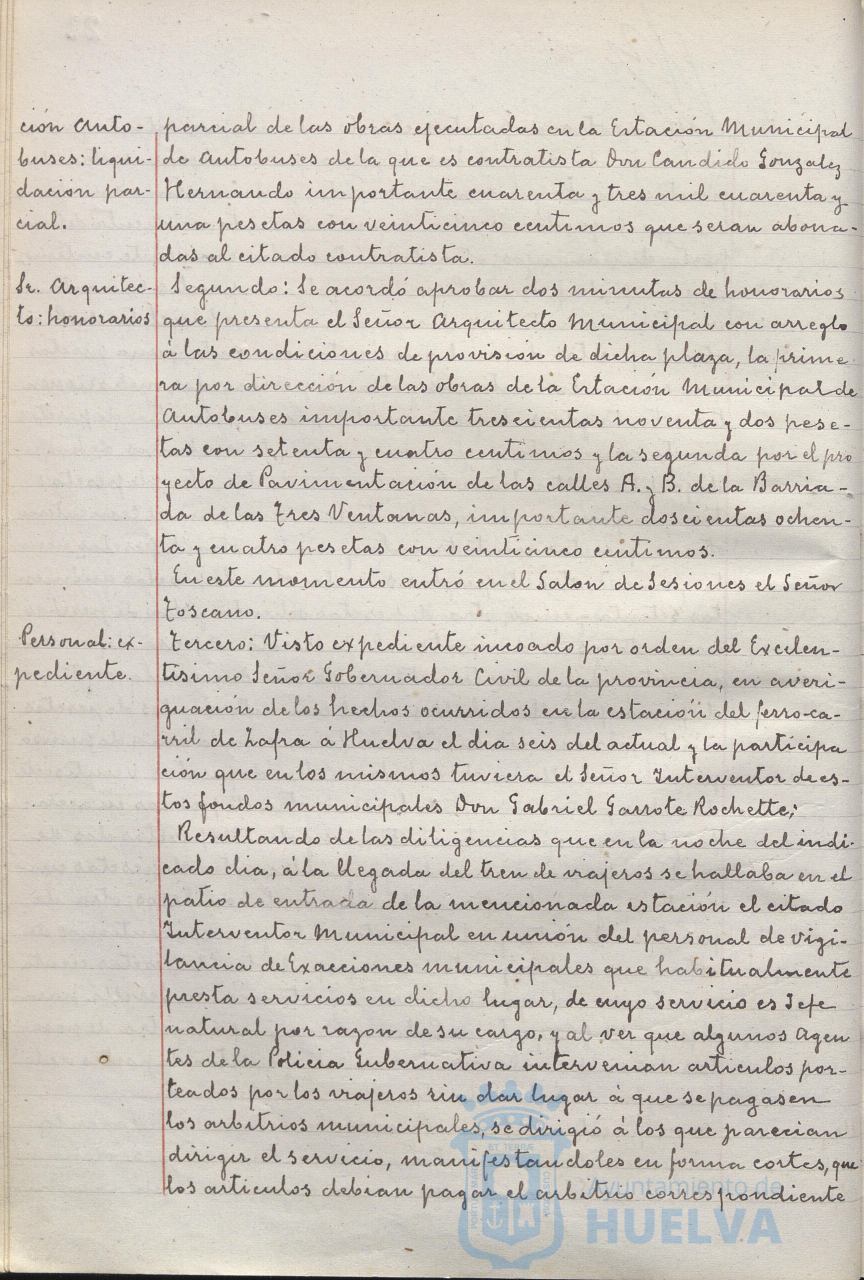 ción Auto-
buses: liqui-
dación par-
cial.
parcial de las obras ejecutadas en la Estación Municipal
de Autobuses de la que es contratista Don Candido Gonzalez
Hernando importante cuarenta y tres mil cuarenta y
una pesetas con veinticinco centimos que seran abona-
das al citado contratista.
Sr. Arquitec-
to: honorarios
Segundo: Se acordó aprobar dos minutas de honorarios
que presenta el Señor Arquitecto Municipal con arreglo
á las condiciones de provisión de dicha plaza, la prime-
ra por dirección de las obras de la Estación Municipal de
Autobuses importante trescientas noventa y dos pese-
tas con setenta y cuatro centimos y la segunda por el pro
yecto de Pavimentación de las calles A. y B. de la Barria-
da de las Tres Ventanas, importante doscientas ochen-
ta y cuatro pesetas con veinticinco centimos.
En este momento entró en el Salon de Sesiones el Señor
Toscano.
Personal: ex-
pediente.
Tercero: Visto expediente incoado por orden del Excelen-
tisimo Señor Gobernador Civil de la provincia, en averi-
guación de los hechos ocurridos en la estación del ferro-ca-
rril de Zafra á Huelva el dia seis del actual y la participa
ción que en los mismos tuviera el Señor Interventor de es-
tos fondos municipales Don Gabriel Garrote Rochette;
Resultando de las diligencias que en la noche del indi-
cado dia, á la llegada del tren de viajeros se hallaba en el
patio de entrada de la mencionada estación el citado
Interventor Municipal en unión del personal de vigi-
lancia de Exacciones municipales que habitualmente
presta servicios en dicho lugar, de cuyo servicio es Jefe
natural por razon de su cargo, y al ver que algunos Agen
tes de la Policia Gubernativa intervenian articulos por-
teados por los viajeros sin dar lugar á que se pagasen
los arbitrios municipales, se dirigió á los que parecian
dirigir el servicio, manifestandoles en forma cortes, que
los articulos debian pagar el arbitrio correspondiente
Ayuntamiento de
HUELVA